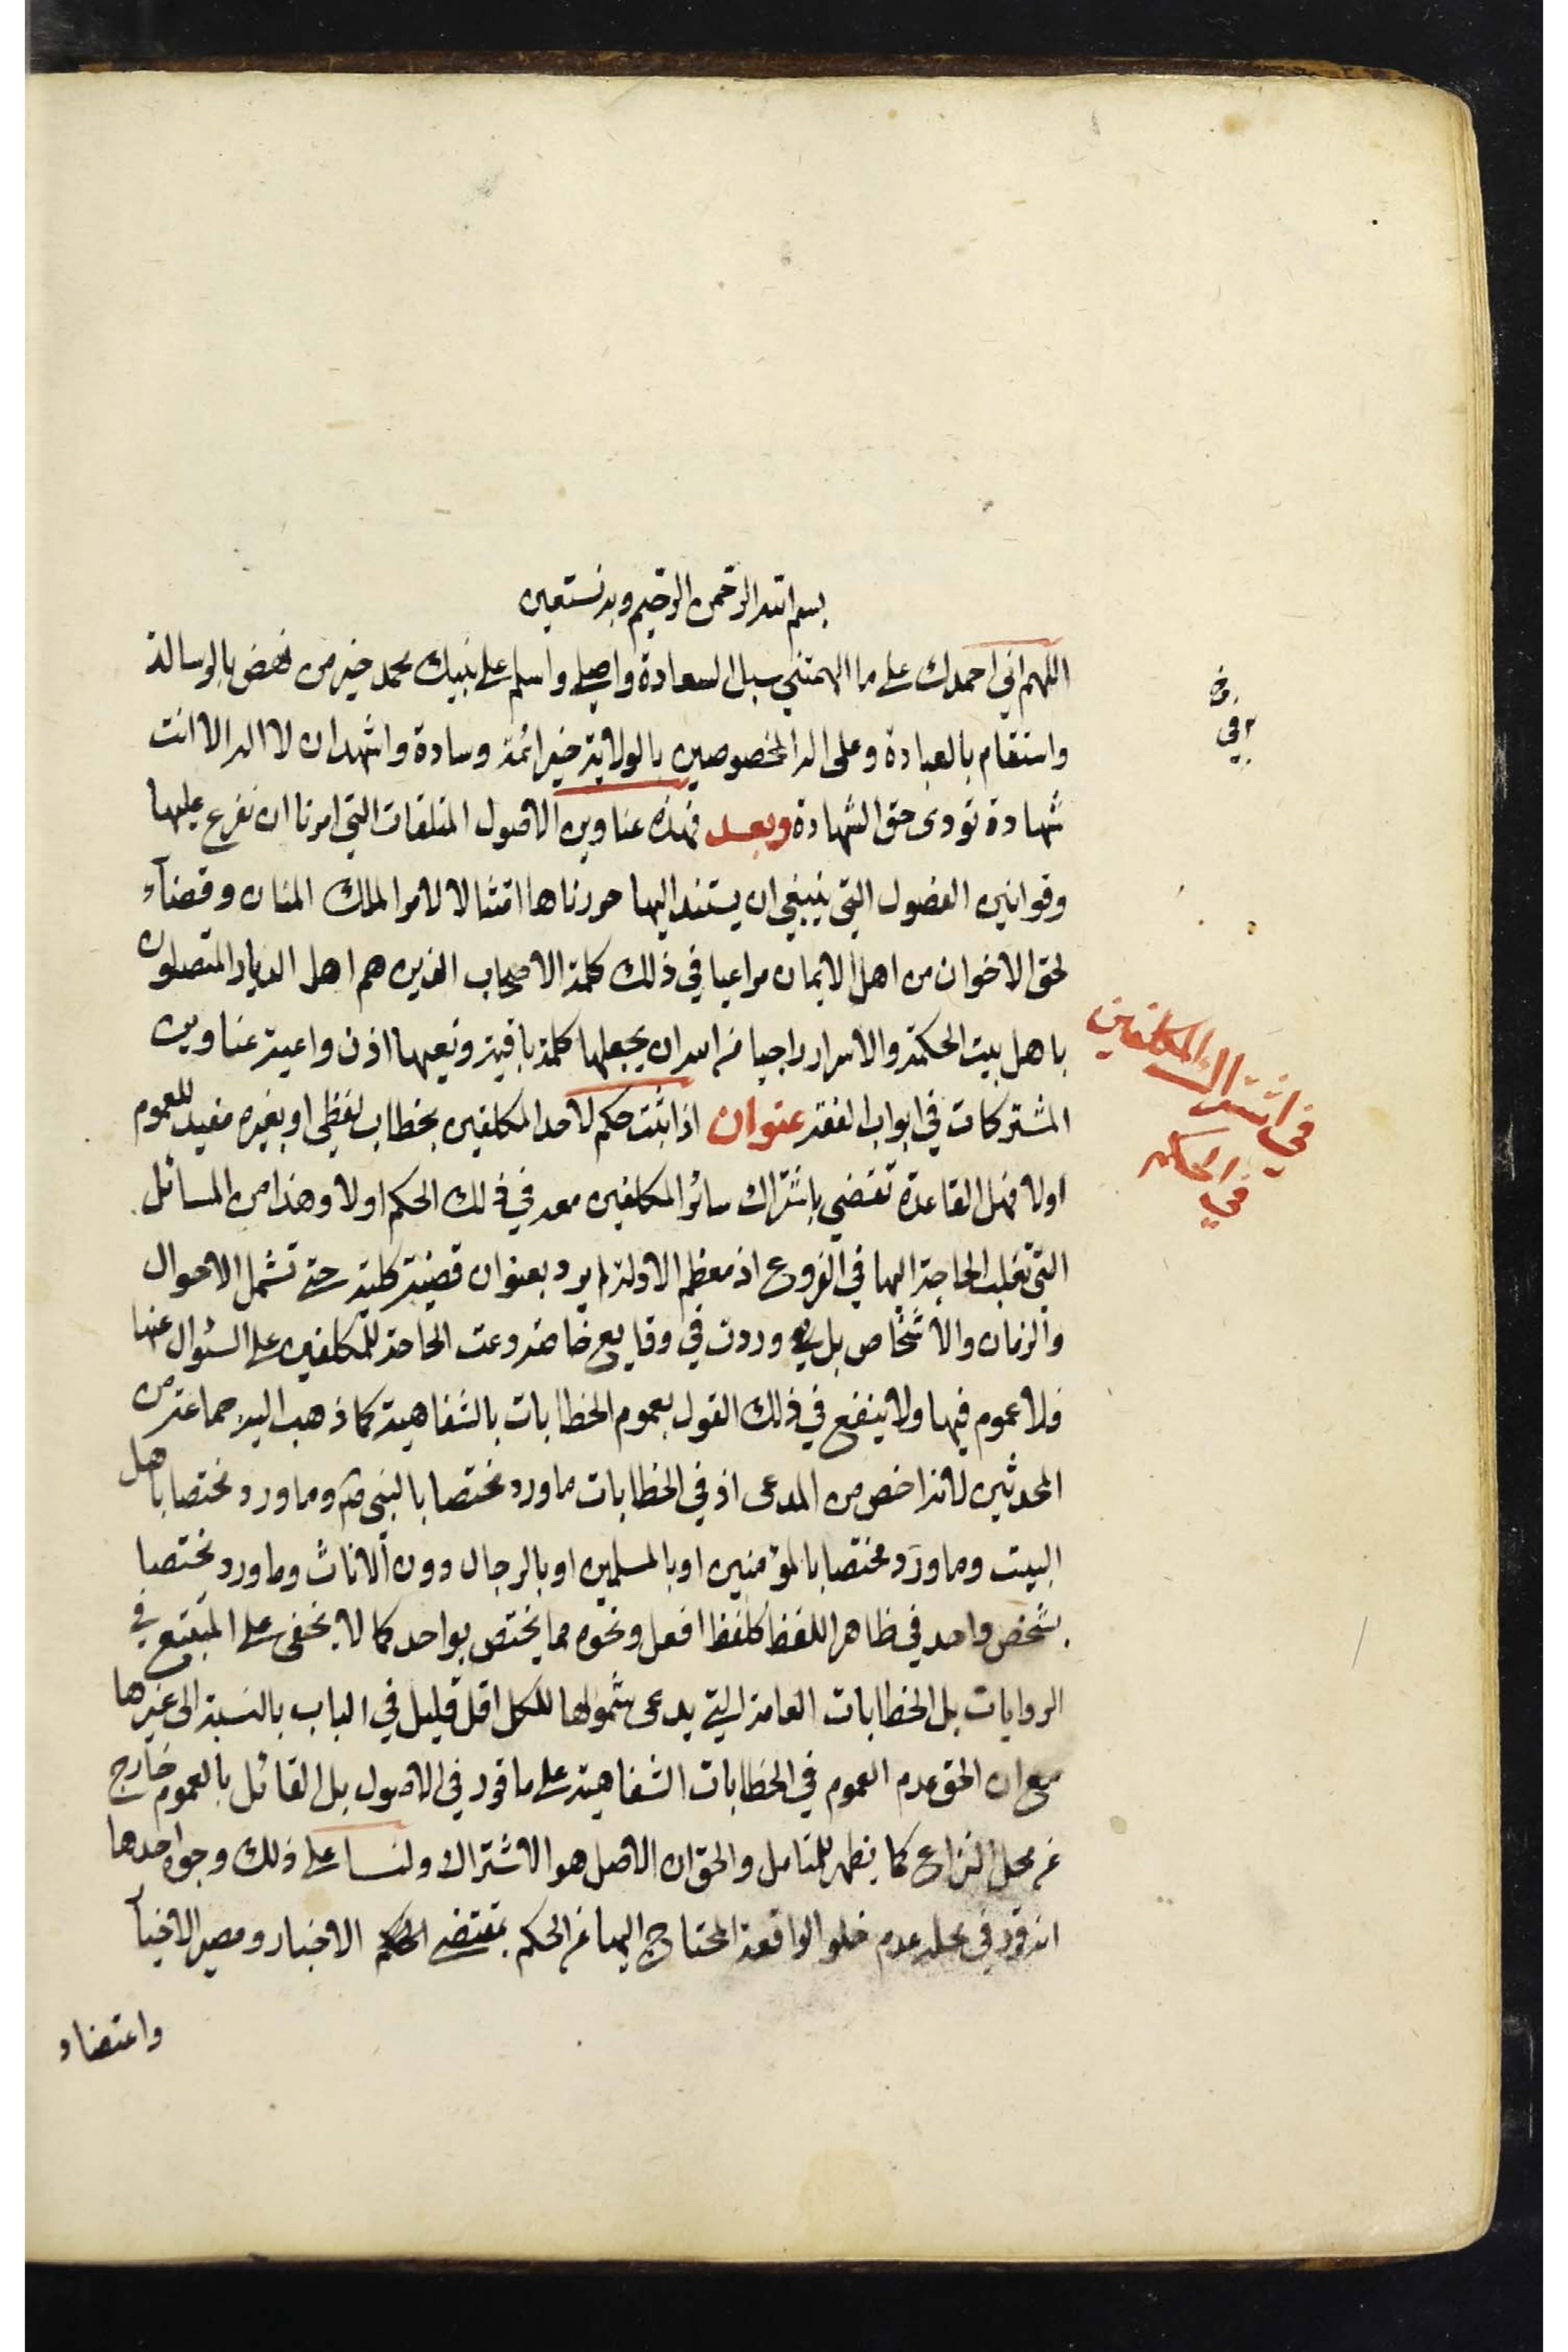 بسم الله الرحمن الرحيم وبه نستعين
اللهم اني احمدك على ما الهمتني سبل السعادة واصلي واسلم على نبيك محمد خير من نهض بالرسالة
واستقام بالعبادة وعلى اله المخصوصين بالولاية خير ائمة وسادة واشهد ان لا اله الا انت
شهادة تودى حق الشهادة وبعد فهذه عناوين الاصول المتلقات التي امرنا ان نفرع عليها
وقوانين الفصول التي ينبغي ان يستند اليها حررناها امتثالا لامر الملك المنان وقضآء
لحق الاخوان من اهل الايمان مراعيا في ذلك كلمة الاصحاب الذين هم اهل الديار المتصلون
باهل بيت الحكمة والاسرار راجيا من الله ان يجعلها كلمة باقية وتعيها اذن واعية عناوين
المشتركات في ابواب الفقه عنوان اذا ثبت حكم لاحد المكلفين بخطاب لفظي او بغيره مفيد للعموم
اولا فهل القاعدة تقضي باشتراك سائر المكلفين معه في ذلك الحكم اولا وهذا من المسائل
التي تغلب الحاجة اليها في الفروع اذ معظم الادلة لم يرد بعنوان قضية كلية حتى تشمل الاحوال
والزمان والاشخاص بل هي وردت في وقايع خاصة دعت الحاجة للمكلفين على السؤال عنها
فلا عموم فيها ولا ينفع في ذلك القول بعموم الخطابات بالشفاهية كما ذهب اليه جماعة من
المحدثين لانه اخص من المدعى اذ في الخطابات ما ورد مختصا بالنبي ص وما ورد مختصا باهل
البيت وما ورد مختصا بالمؤمنين او بالمسلمين او بالرجال دون الاناث وما ورد مختصا
بشخص واحد في ظاهر اللفظ كلفظ افعل ونحوه مما يختص بواحد كما لا يخفى على المتتبع في
الروايات بل الخطابات العامة التي يدعى شمولها للكل اقل قليل في الباب بالنسبة الى غيرها
مع ان الحق عدم العموم في الخطابات الشفاهية على ما قرر في الاصول بل القائل بالعموم خارج
عن محل النزاع كما يظهر للمتامل والحق ان الاصل هو الاشتراك ولنا على ذلك وجوه احدها
انه قرر في محله عدم خلو الواقعة المحتاج اليها عن الحكم بمقتضى الاخبار ومصير الاخيآ
واعتضاد
في اشتراك المكلفين
في الحكم